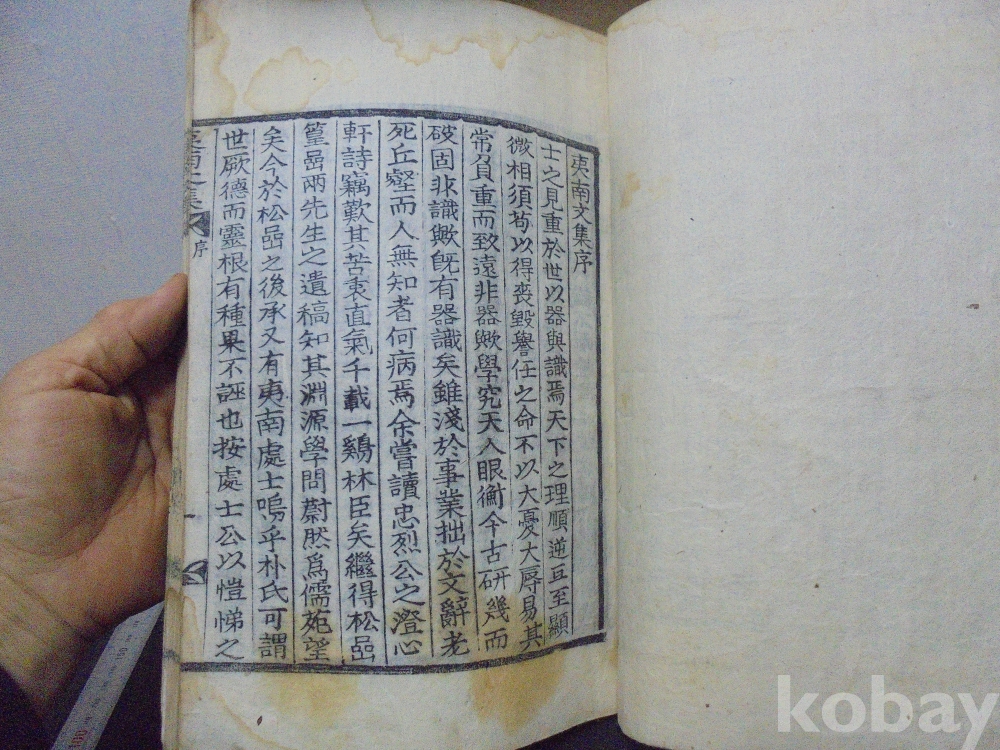 夷南文集序
士之見重於世以器與識焉天下之理順逆互至顯
微相須苟以得喪毀譽任之命不以大憂大辱易其
常負重而致遠非器歟學究天人眼衡今古研幾而
破固非識歟旣有器識矣雖淺於事業拙於文辭老
死丘壑而人無知者何病焉余嘗讀忠烈公之澄心
軒詩竊歎其苦衷直氣千載一鷄林臣矣繼得松嵒
篁嵒兩先生之遺稿知其淵源學問蔚然爲儒苑望
矣今於松嵒之後承又有夷南處士嗚乎朴氏可謂
世厥德而靈根有種果不誣也按處士公以愷悌之
夷南文集 序 一
kobay